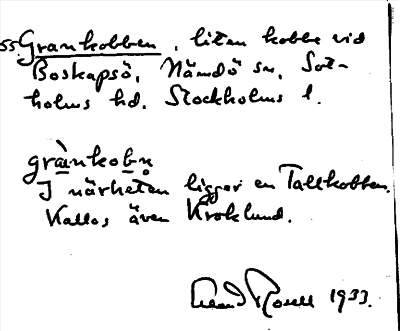 55. Grankobben, liten kobbe vid
Boskapsö, Nämdö sn, Sot-
holms hd. Stockholms l.
grànkobn̥
I närheten ligger en Tallkobben.
Kallas även Kroklund.
1933.